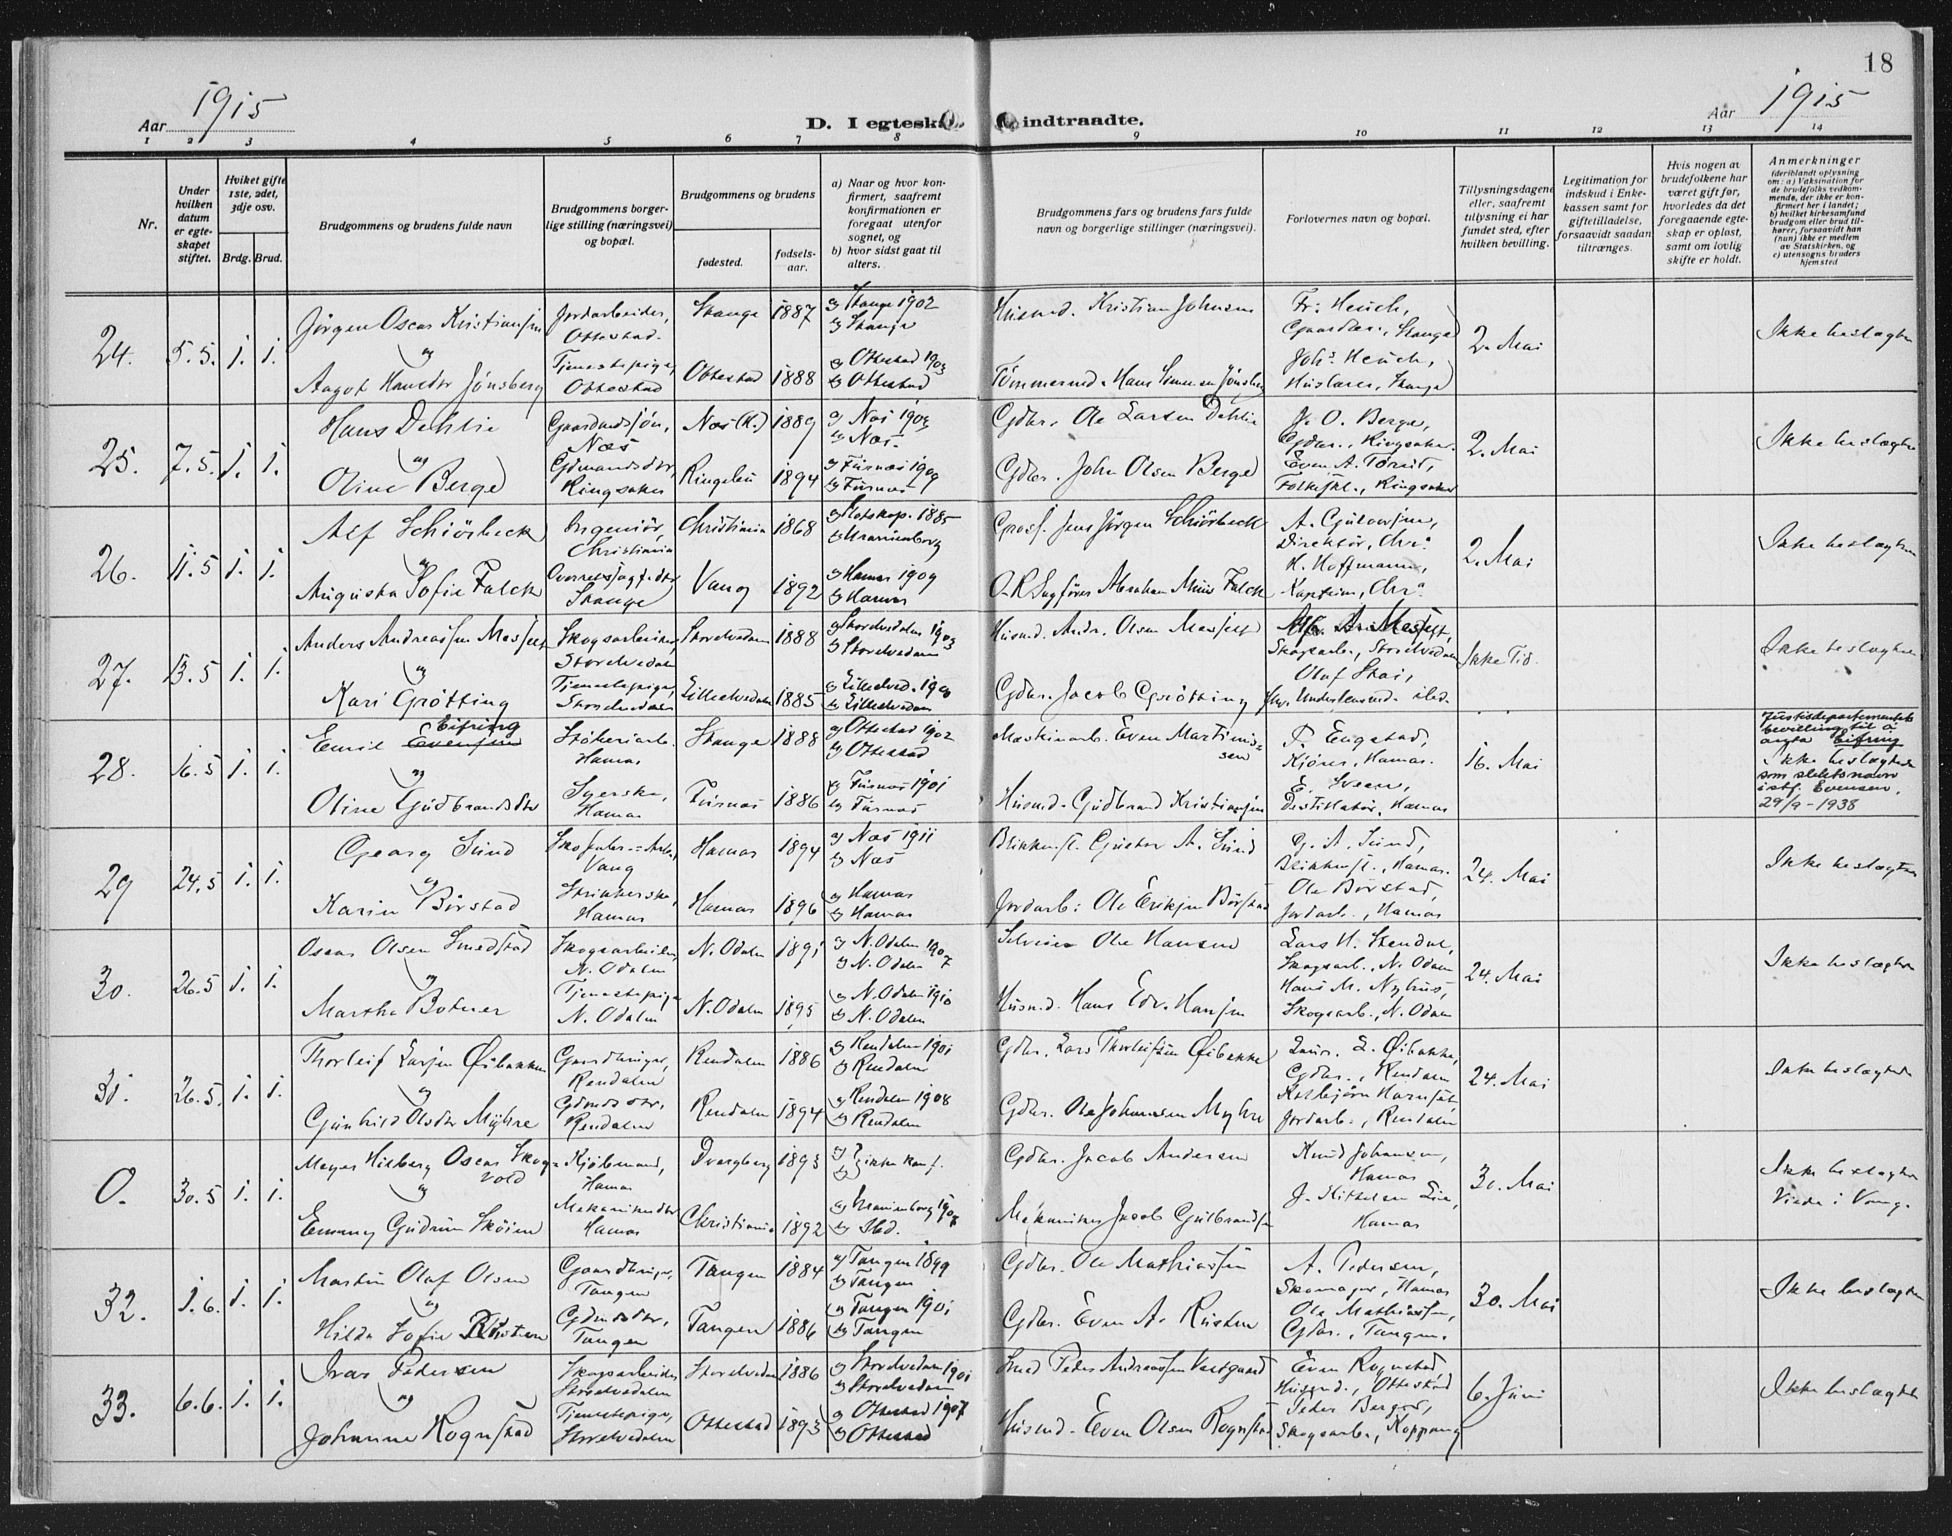 18
Aar 1915
D. I egteska indtraadte.
Aar 1915
1 2 3 4 5 6 7 8 9 10 11 12 13 14
Nr.
Under hvilken datum er egteskapet stiftet.
Hviket gifte 1ste, 2det, 3dje osv.
Brdg. Brud.
Brudgommens og brudens fulde navn
Brudgommens borgerlige stilling (næringsvei) og bopæl.
Brudgommens og brudens
fødested.
fødselsaar.
a) Naar og hvor konfirmert, saafremt konfirmationen er foregaat utenfor sognet, og
b) hvor sidst gaat til alters.
Brudgommens fars og brudens fars fulde navn og borgerlige stillinger (næringsvei).
Forlovernes navn og bopæl.
Tillysningsdagene eller, saafremt tillysning ei har fundet sted, efter hvilken bevilling.
Legitimation for indskud i Enkekassen samt for giftetilladelse, forsaavidt saadan tiltrænges.
Hvis nogen av brudefolkene har været gift før, hvorledes da det foregaaende egteskap er opløst, samt om lovlig skifte er holdt.
Anmerkninger (deriblandt oplysning om: a) Vaksination for de brudefolks vedkommende, der ikke er konfirmert her i landet; b) hvilket kirkesamfund brudgom eller brud tilhører, forsaavidt han (hun) ikke er medlem av Statskirken, og c) utensogns bruders hjemsted
24. 5.5. 1. 1.
Jørgen Oscar Kristiansen
og
Aagot Hansdtr Jønsberg
Jordarbeider, Ottestad.
Tjenestepige, Ottestad
Stange 1887
Ottestad 1888
a) Stange 1902
b) Stange
a) Ottestad 1903
b) Ottestad
Husmd. Kristian Johnsen
Tømmermd. Hans Simensen Jønsberg
Fr. Heuch,
Gaardbr., Stange
Johs Heuch,
Huslærer, Stange
2. Mai
Ikke beslægtede
25. 7.5. 1. 1.
Hans Dehlie
og
Oline Berge
Gaardmdssøn, Næs
Gdmandsdtr, Ringsaker
Næs (H.) 1889
Ringebu 1894
a) Næs 1903
b) Næs.
a) Furnæs 1909
b) Furnæs
Gdbr. Ole Larsen Dehlie
Gdbr. John Olsen Berge
J. O. Berge,
Gdbr., Ringsaker.
Even A. Tørud,
Folkeskl., Ringsaker
2. Mai
Ikke beslægtede
26. 11.5 1. 1.
Alf Schiörbeck
og
Augusta Sofie Falck
Ingeniør, Christiania
Overretssagf.dtr Stange
Christiania 1868
Vang 1892
a) Slotskap. 1885
b) Uranienborg
a) Hamar 1909
b) Hamar
Gross. Jens Jørgen Schiörbeck
O.R.Sagfører Abraham Falck
A. Gulowsen,
Direktør, Chr.a
H. Hoffmann,
Kaptein, Chr.a
2. Mai
Ikke beslægtede
27. 13.5 1. 1.
Anders Andreassen Messelt
og
Kari Grøtting
Skogsarbeider, Storelvedalen
Tjenestepige, Storelvedalen
Storelvedalen 1888
Lilleelvedalen 1885
a) Storelvedalen 1903
b) Storelvedalen
a) Lilleelved. 1900
b) Lilleelvedalen
Husmd. Andr. Olsen Messelt
Gdbr. Jacob Grøtting
A. Messelt,
Skogsarb., Storelvedalen
Olaf Stai,
ibd.
Ikke Tid.
Ikke beslægtede
28. 16.5 1. 1.
Emil Evensen Eifring
og
Oline Gudbrandsdtr
Støberiarb. Hamar
Syerske, Hamar
Stange 1888
Furnæs 1886
a) Ottestad 1902
b) Ottestad
a) Furnæs 1901
b) Furnæs
Maskinarb. Even Martinussen
Husmd. Gudbrand Kristiansen
P. Engstad,
Kjører, Hamar.
E. Sveen,
Destillatør, Hamar
16. Mai
Justisdepartementets bevilling til å anta Eifring
Ikke beslægtede
som slektsnavn istf. Evensen.
29/9 - 1938
29 24.5 1. 1.
Georg Sund
og
Karin Børstad
Skofabr.-Arb., Vang
Strikkerske, Hamar
Hamar 1894
Hamar 1896
a) Næs 1911
b) Næs
a) Hamar
b) Hamar
Blikksl. Gustav A. Sund
Jordarb. Ole Eriksen Børstad
G. A. Sund,
Blikksl., Hamar.
Ole Børstad,
Jordarb., Hamar
24. Mai
Ikke beslægtede
30. 26.5 1. 1.
Oscar Olsen Smedstad
og
Martha Botner
Skogsarbeider, N. Odalen
Tjenestepige N. Odalen
N. Odalen 1891
N. Odalen 1895
a) N. Odalen 1907
b) N. Odalen
a) N. Odalen 1910
b) N. Odalen
Selveier Ole Hansen
Husmd. Hans Edv. Hansen
Lars H. Stendal,
Skogsarb., N. Odalen
Hans M. Nyhus,
Skogsarb., N. Odalen
24. Mai
Ikke beslægtede
31. 26.5. 1. 1.
Thorleif Larsen Øibakken
og
Gunhild Olsdtr Myhre
Gaardbruger, Rendalen
Gdmdsdtr, Rendalen
Rendalen 1886
Rendalen 1894
a) Rendalen 1901
b) Rendalen
a) Rendalen 1908
b) Rendalen
Gdbr. Lars Thorleifsen Øibakke
Gdbr. Ole Johannsen Myhre
Laur. L. Øibakke,
Gdbr., Rendalen
Kolbjørn Harnset,
Jordarb., Rendalen
24. Mai
Ikke beslægtede
0. 30.5 1. 1.
Meyer Hilberg Oscar Skogvold
og
Emmy Gudrun Skøien
Kjøbmand, Hamar
Mekanikerdtr Hamar
Dvergberg 1893
Christiania 1892
a) b) ikke konf.
a) Uranienborg 1907
b) Ibd.
Gdbr. Jacob Andersen
Mekaniker Jacob Gulbrandsen
Knud Johansen,
Hamar
J. Kittelsen Lie,
Hamar
30. Mai
Ikke beslægtede
Viede i Vang.
32. 1.6. 1. 1.
Martin Olaf Olsen
og
Hilda Sofie Rusten
Gaardbruger, Tangen
Gdmdsdtr, Tangen
Tangen 1884
Tangen 1886
a) Tangen 1899
b) Tangen
a) Tangen 1901
b) Tangen
Gdbr. Ole Mathiassen
Gdbr. Even A. Rusten
A. Pedersen,
Skomager, Hamar
Ole Mathiassen,
Gdbr., Tangen.
30. Mai
Ikke beslægtede
33. 6.6. 1. 1.
Ivar Pedersen
og
Johanne Rognstad
Skogsarbeider Storelvedalen
Tjenestepige, Storelvedalen
Storelvedalen 1886
Ottestad 1893
a) Storelvedalen 1901
b) Storelvedalen
a) Ottestad 1907
b) Ottestad
Smed Peder Andreassen Vestgaard
Husmd. Even Olsen Rognstad
Even Rognstad,
Husmd., Ottestad
Peder Berger,
Skogsarb., Koppang
6. Juni
Ikke beslægtede